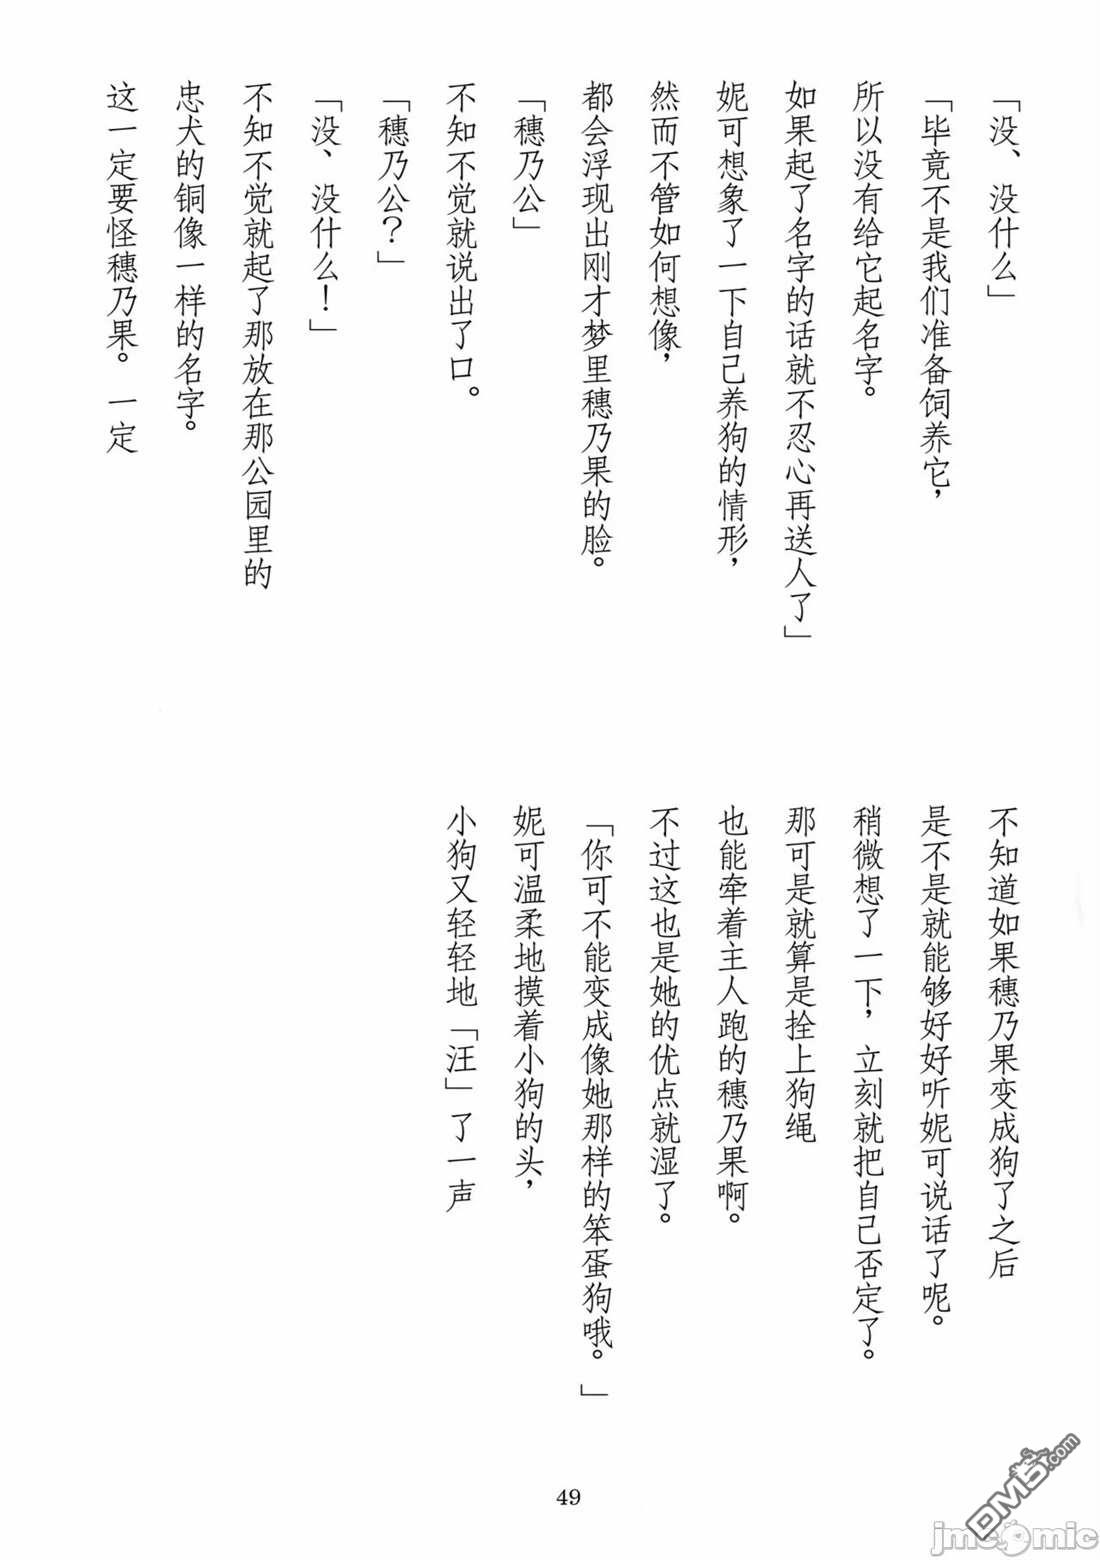 「没、没什么」
「毕竟不是我们准备饲养它，
所以没有给它起名字。
如果起了名字的话就不忍心再送人了」
妮可想象了一下自己养狗的情形，
然而不管如何想像，
都会浮现出刚才梦里穗乃果的脸。
「穗乃公」
不知不觉就说出了口。
「穗乃公？」
「没、没什么！」
不知不觉就起了那放在那公园里的
忠犬的铜像一样的名字。
这一定要怪穗乃果。一定
不知道如果穗乃果变成狗了之后
是不是就能够好好听妮可说话了呢。
稍微想了一下，立刻就把自己否定了。
那可是就算是拴上狗绳
也能牵着主人跑的穗乃果啊。
不过这也是她的优点就湿了。
「你可不能变成像她那样的笨蛋狗哦。」
妮可温柔地摸着小狗的头，
小狗又轻轻地「汪」了一声
49
DM5.com
jmcomic